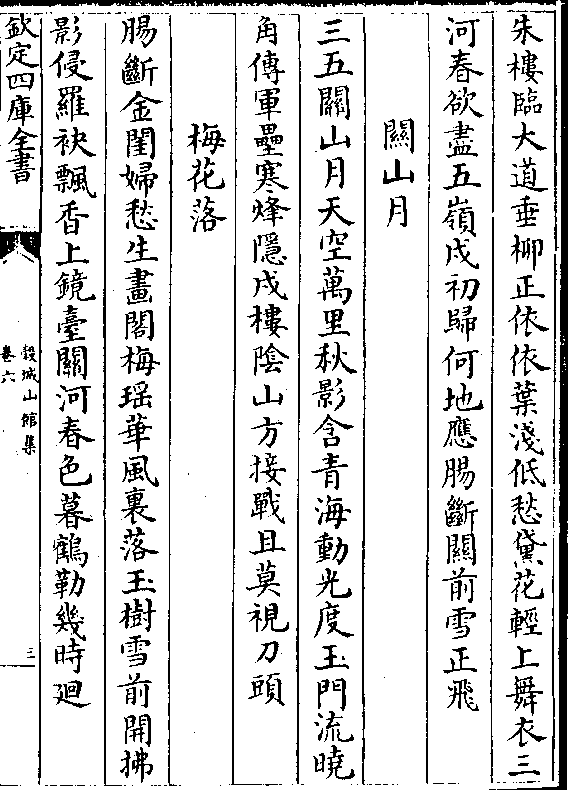 朱樓臨大道垂柳正依依葉淺低愁黛花輕上舞衣三
河春欲盡五嶺戍初歸何地應腸斷關前雪正飛
關山月
三五關山月天空萬里秋影含青海動光度玉門流曉
角傳軍壘寒烽隱戍樓陰山方接戰且莫視刀頭
梅花落
腸斷金閨婦愁生畫閣梅瑶華風裏落玉樹雪前開拂
影侵羅袂飄香上鏡臺關河春色暮鶴勒幾時廻
欽定四庫全書
穀城山館集
卷六
三